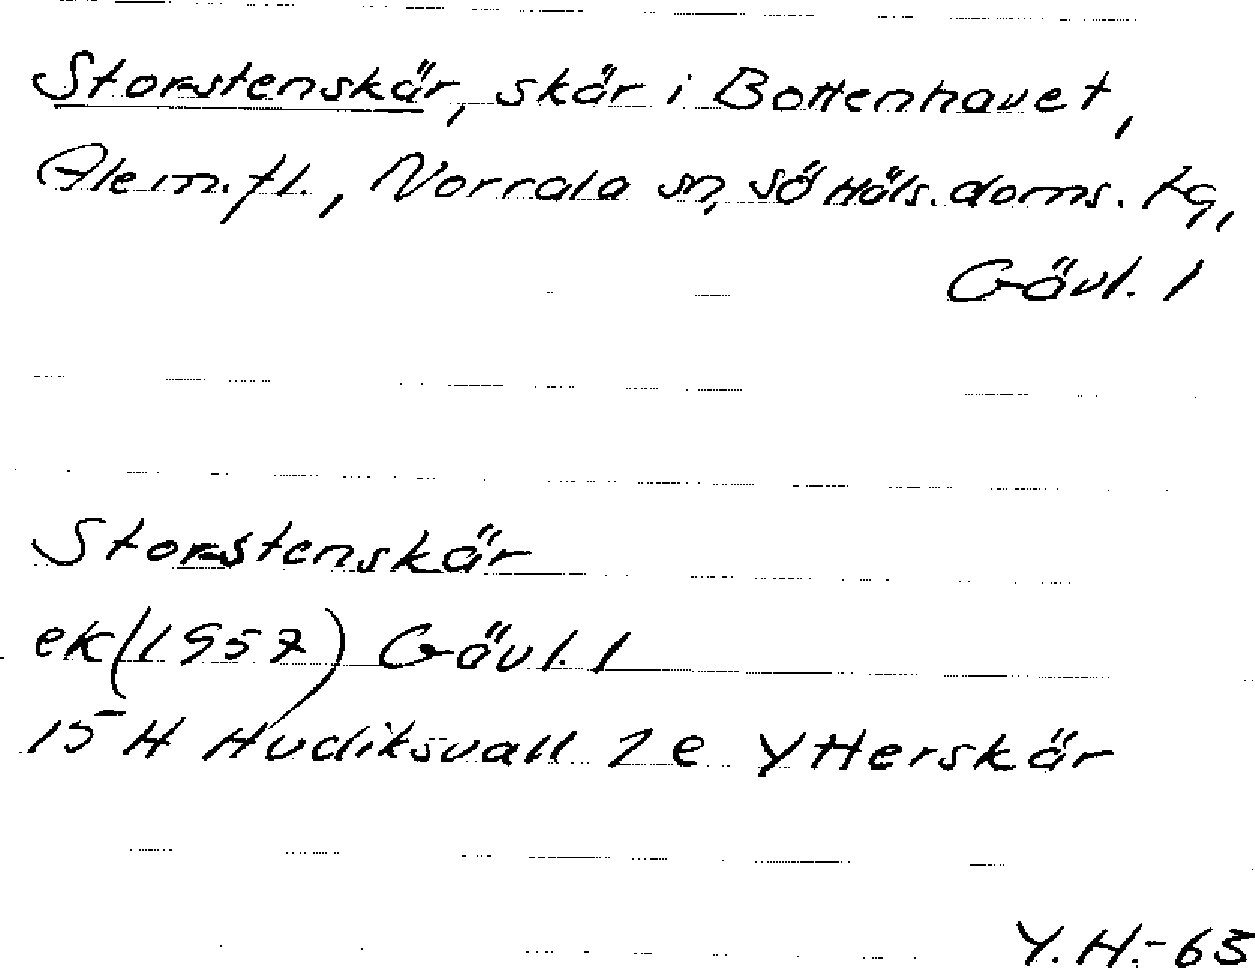 Storstenskär, skär i Bottenhavet,
Alem.fl., Norrala sn, Sö Häls. doms. tg,
Gävl. l
Storstenskär
ek (1957) Gävl. l
15 H Hudiksvall 2 e Ytterskär
Y.H.-65